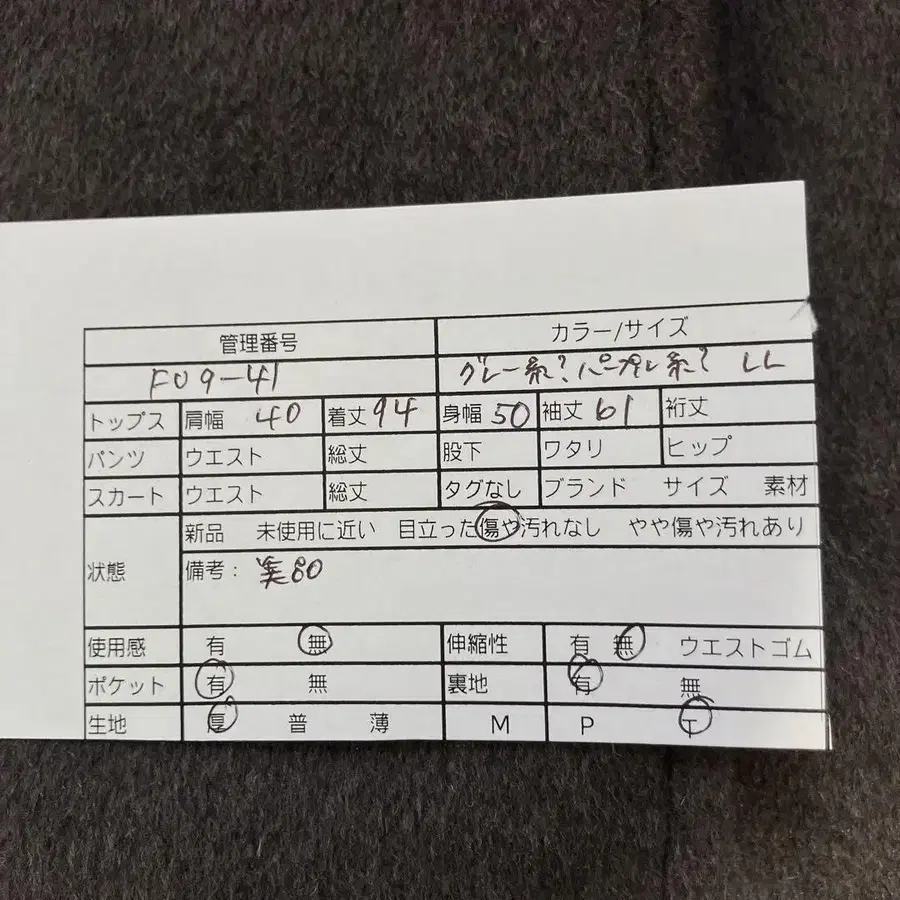 管理番号 カラー/サイズ
F09-41 グレー系?パープル系? LL
トップス 肩幅 40 着丈 94 身幅 50 袖丈 61 裄丈
パンツ ウエスト 総丈 股下 ワタリ ヒップ
スカート ウエスト 総丈 タグなし ブランド サイズ 素材
状態 新品 未使用に近い 目立った傷や汚れなし やや傷や汚れあり
備考: 美80
使用感 有 無 伸縮性 有 無 ウエストゴム
ポケット 有 無 裏地 有 無
生地 厚 普 薄 M P T